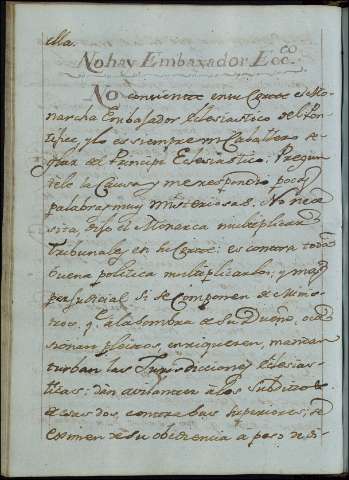 ella.
No hay Embaxador Ecc.co
No consiente en su Corte el Mo-
narcha Embaxador Eclesiastico del Pon-
tifice, y lo es siempre un Caballero se-
glar del Principe Eclesiastico: Pregun-
tele la Causa y me respondio pocas
palabras muy misteriosas. No nece-
sita, dijo el Monarca multiplicar
Tribunales en la Corte: es contra toda
buena politica multiplicarlos; y mas
perjudicial si se componen de Minis-
tros, q.e a la sombra de su Dueño, oca-
sionan pleitos, enriquecen, mandan
turban las Jurisdicciones Eclesias-
ticas; dan avilanten a los subditos
contra sus superiores; se
eximen de su obediencia a peso de di-